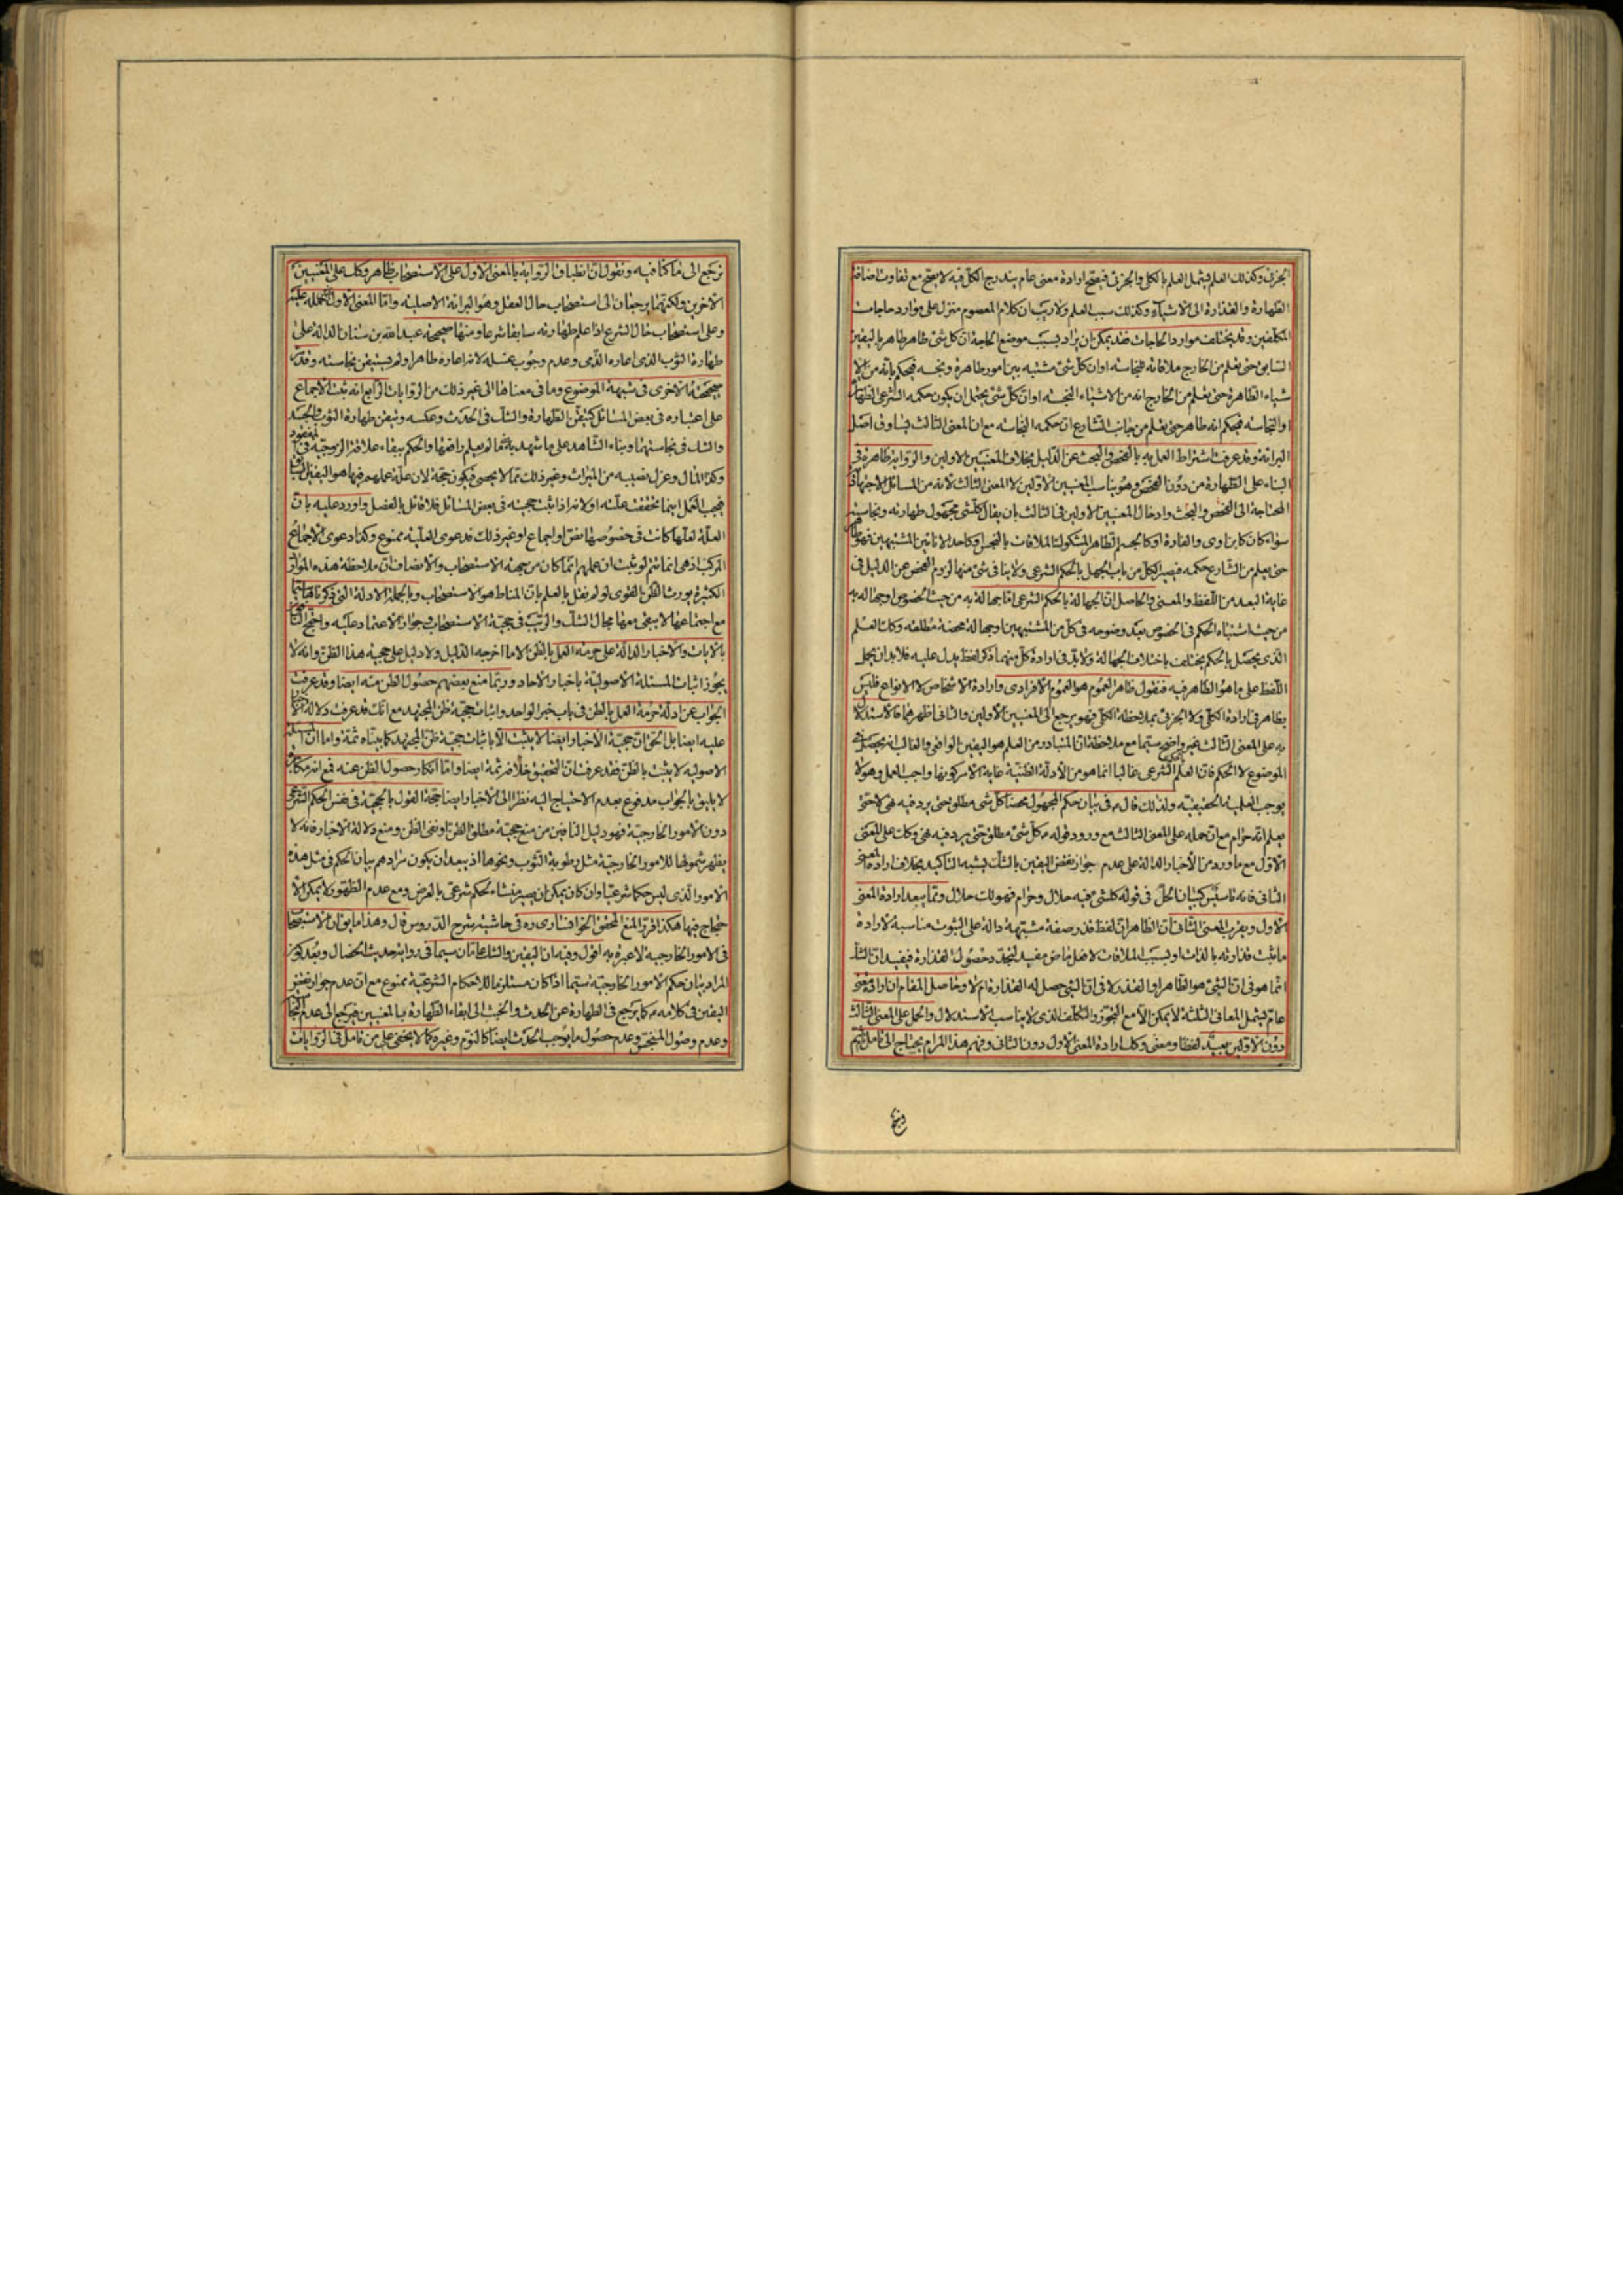 الجزئى وكذلك العلم يشمل العلم بالكلى والجزئى فيصح ارادة معنى عام يندرج الكل فيه لا يصح مع تفاوت اضافة
الطهارة والقذارة الى الاشياء وكذلك سبب العلم ولا ريب ان كلام المعصوم منزل على موارد حاجات
المكلفين وقد يختلف موارد الحاجات فقد يمكن ان يراد بسبب موضع الحاجة ان كل شئ طاهر طاهر باليقين
السابق حتى يعلم من الخارج ملاقاته للنجاسة او ان كل شئ مشتبه بين امور طاهرة ونجسه فيحكم بانه من الا
شياء الطاهرة حتى يعلم من الخارج انه من الاشياء النجسة او ان كل شئ يحتمل ان يكون حكمه الشرعى الطهارة
او النجاسه فيحكم انه طاهر حتى يعلم من جانب الشارع ان حكمه النجاسه مع ان المعنى الثالث يساوق اصل
البرائة وقد عرفت اشتراط العمل به بالفحص والبحث عن الدليل بخلاف المعنيين الاولين والرواية ظاهرة فى
البناء على الطهارة من دون الفحص وهو يناسب المعنيين الاولين لا المعنى الثالث لانه من المسائل الاجتهادية
المحتاجة الى الفحص والبحث وادخال المعنيين الاولين فى الثالث بان يقال كل شئ مجهول طهارته ونجاسته
حتى يعلم من الشارع حكمه فيصير الكل من باب الجهل بالحكم الشرعى ولا ينافى شئ منها لزوم الفحص عن الدليل فى
غاية البعد من اللفظ والمعنى والحاصل ان الجهالة بالحكم الشرعى اما جهالة به من حيث الخصوص او جهاله به
من حيث اشتباه الحكم فى الخصوص بعد وضوحه فى كل من المشتبهين وجهالة محضة مطلقه وكك العلم
الذى يحصل بالحكم يختلف باختلاف الجهالة ولا بد فى ارادة كل منهما ذكر لفظ يدل عليه فلا بد ان يحمل
اللفظ على ما هو الظاهر فيه فنقول ظاهر العموم هو العموم الافرادى وارادة الاشخاص لا الانواع فليس
بظاهر فى ارادة الكلى ولا الجزئى بملاحظة الكلى فهو يرجع الى المعنيين الاولين والثانى اظهرهما فالاستدلال
به على المعنى الثالث غير واضح سيما مع ملاحظة ان المتبادر من العلم هو اليقين الواقعى والغالب انه يحصل فى
الموضوع لا الحكم فان العلم بالحكم الشرعى غالبا انما هو من الادلة الظنية غاية الامر كونها واجب العمل وهو لا
يوجب العلمية الحقيقيّة ولذلك قال ع فى بيان حكم المجهول محضا كل شئ مطلق حتى يرد فيه نهى لا حتى
يعلم انه حرام مع ان حمله على المعنى الثالث مع ورود قوله ع كل شئ مطلق حتى يرد فيه نهى وكك على المعنى
الاول مع ما ورد من الاخبار الدالة على عدم جواز نقض اليقين بالشك يشبه التاكيد بخلاف ارادة المعنى
الثانى فانه تاسيس كبيان الحل فى قوله كل شئ فيه حلال وحرام فهو لك حلال ومما يبعد ارادة المعنى
الاول ويقرب المعنى الثانى ان الظاهر ان لفظ قذر صفة مشبهة دالة على الثبوت مناسبة لارادة
ما ثبت قذارته بالذات او بسبب الملاقات لا فعل ماض مفيد لتجدد حصول القذارة فيفيد ان الشك
انما هو فى ان الشئ هو الطاهر او القذر لا فى ان الشئ حصل له القذارة ام لا وحاصل المقام ان ارادة معنى
عام يشمل المعانى الثلثة لا يمكن الا مع التجوز والتكلف الذى لا يناسب الاستدلال والحمل على المعنى الثالث
دون الاولين بعيد لفظا ومعنى وكك ارادة المعنى الاول دون الثانى وفهم هذا المرام يحتاج الى تامل تام ثم
نرجع الى ما كنا فيه ونقول ان انطباق الرواية بالمعنى الاول على الاستصحاب ظاهر وكك على المعنيين
الاخرين ولكنهما يرجعان الى استصحاب حال العقل وهو البرائة الاصلية واما المعنى الاول
وعلى استصحاب حال الشرع اذا علم طهارته سابقا شرعا ومنها صحيحة عبد الله بن سنان الدالة على
طهارة الثوب الذى اعاره الذمى وعدم وجوب غسله لانه اعاره طاهرا ولم يستيقن نجاسته وفى
صحيحته الاخرى فى شبهة الموضوع وما فى معناها الى غير ذلك من الروايات الرابع انه ثبت الاجماع
على اعتباره فى بعض المسائل كتيقن الطهارة والشك فى الحدث وعكسه وتيقن طهارة الثوب والجسد
والشك فى نجاستهما وبناء الشاهد على ما شهد به ما لم يعلم رافعها والحكم ببقاء علاقة الزوجية فى المفقود
وكذا المال وعزل نصيبه من الميراث وغير ذلك مما لا يحصى فيكون حجة لان علة عملهم فيها هو اليقين السابق
فيجب العمل اينما تحققت علته او لانه اذا ثبت حجيته فى بعض المسائل فلا قائل بالفصل واورد عليه بان
العلة لعلها كانت فى خصوصها نص او اجماع او غير ذلك فدعوى العلية ممنوع وكذا دعوى الاجماع
المركب اذ هى انما تتم لو ثبت ان عملهم انما كان من جهة الاستصحاب والانصاف ان ملاحظة هذه الموارد
الكثيرة يورث الظن القوى لو لم نقل بالعلم بان المناط هو الاستصحاب وبالجملة الادلة التى ذكرناها
مع اجتماعها لا يبقى معها مجال الشك والريب فى حجية الاستصحاب وجواز الاعتماد عليه واحتج النافى
بالايات والاخبار الدالة على حرمة العمل بالظن الا ما اخرجه الدليل ولا دليل على حجية هذا الظن وانه لا
يجوز اثبات المسئلة الاصولية باخبار الاحاد وربما منع بعضهم حصول الظن منه ايضا وقد عرفت
الجواب عن ادلة حرمة العمل بالظن فى باب خبر الواحد واثبات حجية ظن المجتهد مع انك قد عرفت دلالة
عليه ايضا بل الحق ان حجية الاخبار ايضا لا يثبت الا باثبات حجية ظن المجتهد كما بيناه ثمة واما ان المسئلة
الاصولية لا يثبت بالظن فقد عرفت ان التحقيق خلافه ثمة ايضا واما انكار حصول الظن عنه فمع انه مكابرة
لا يليق بالجواب مدفوع بعدم الاحتياج اليه نظرا الى الاخبار ايضا حجة القول بالحجية فى نفس الحكم الشرعى
دون الامور الخارجية فهو دليل النافين من منع حجية مطلق الظن او نفى الظن ومنع دلالة الاخبار فانه لا
يظهر شمولها للامور الخارجية مثل رطوبة الثوب ونحوها اذ يبعد ان يكون مرادهم بيان الحكم فى مثل هذه
الامور الذى ليس حكما شرعيا وان كان يمكن ان يصير منشاء لحكم شرعى بالعرض ومع عدم الظهور لا يمكن الا
حتجاج فيها هكذا قرر المنع المحقق الخوانسارى ره فى حاشية شرح الدروس قال وهذا ما يق ان الاستصحاب
فى الامور الخارجية لا عبرة به اقول وفيه ان اليقين والشك عامان سيما فى رواية حديث الخصال وبعد كون
المراد بيان حكم الامور الخارجية سيما اذا كان مستلزما للاحكام الشرعية ممنوع مع ان عدم جواز نقض
اليقين فى كلامه ع كما يرجع فى الطهارة عن الحدث والخبث الى ابقاء الطهارة بالمعنيين فيرجع الى عدم
وعدم وصول المنجس وعدم حصول ما يوجب الحدث ايضا كالنوم وغيره كما لا يخفى على من تامل فى الروايات